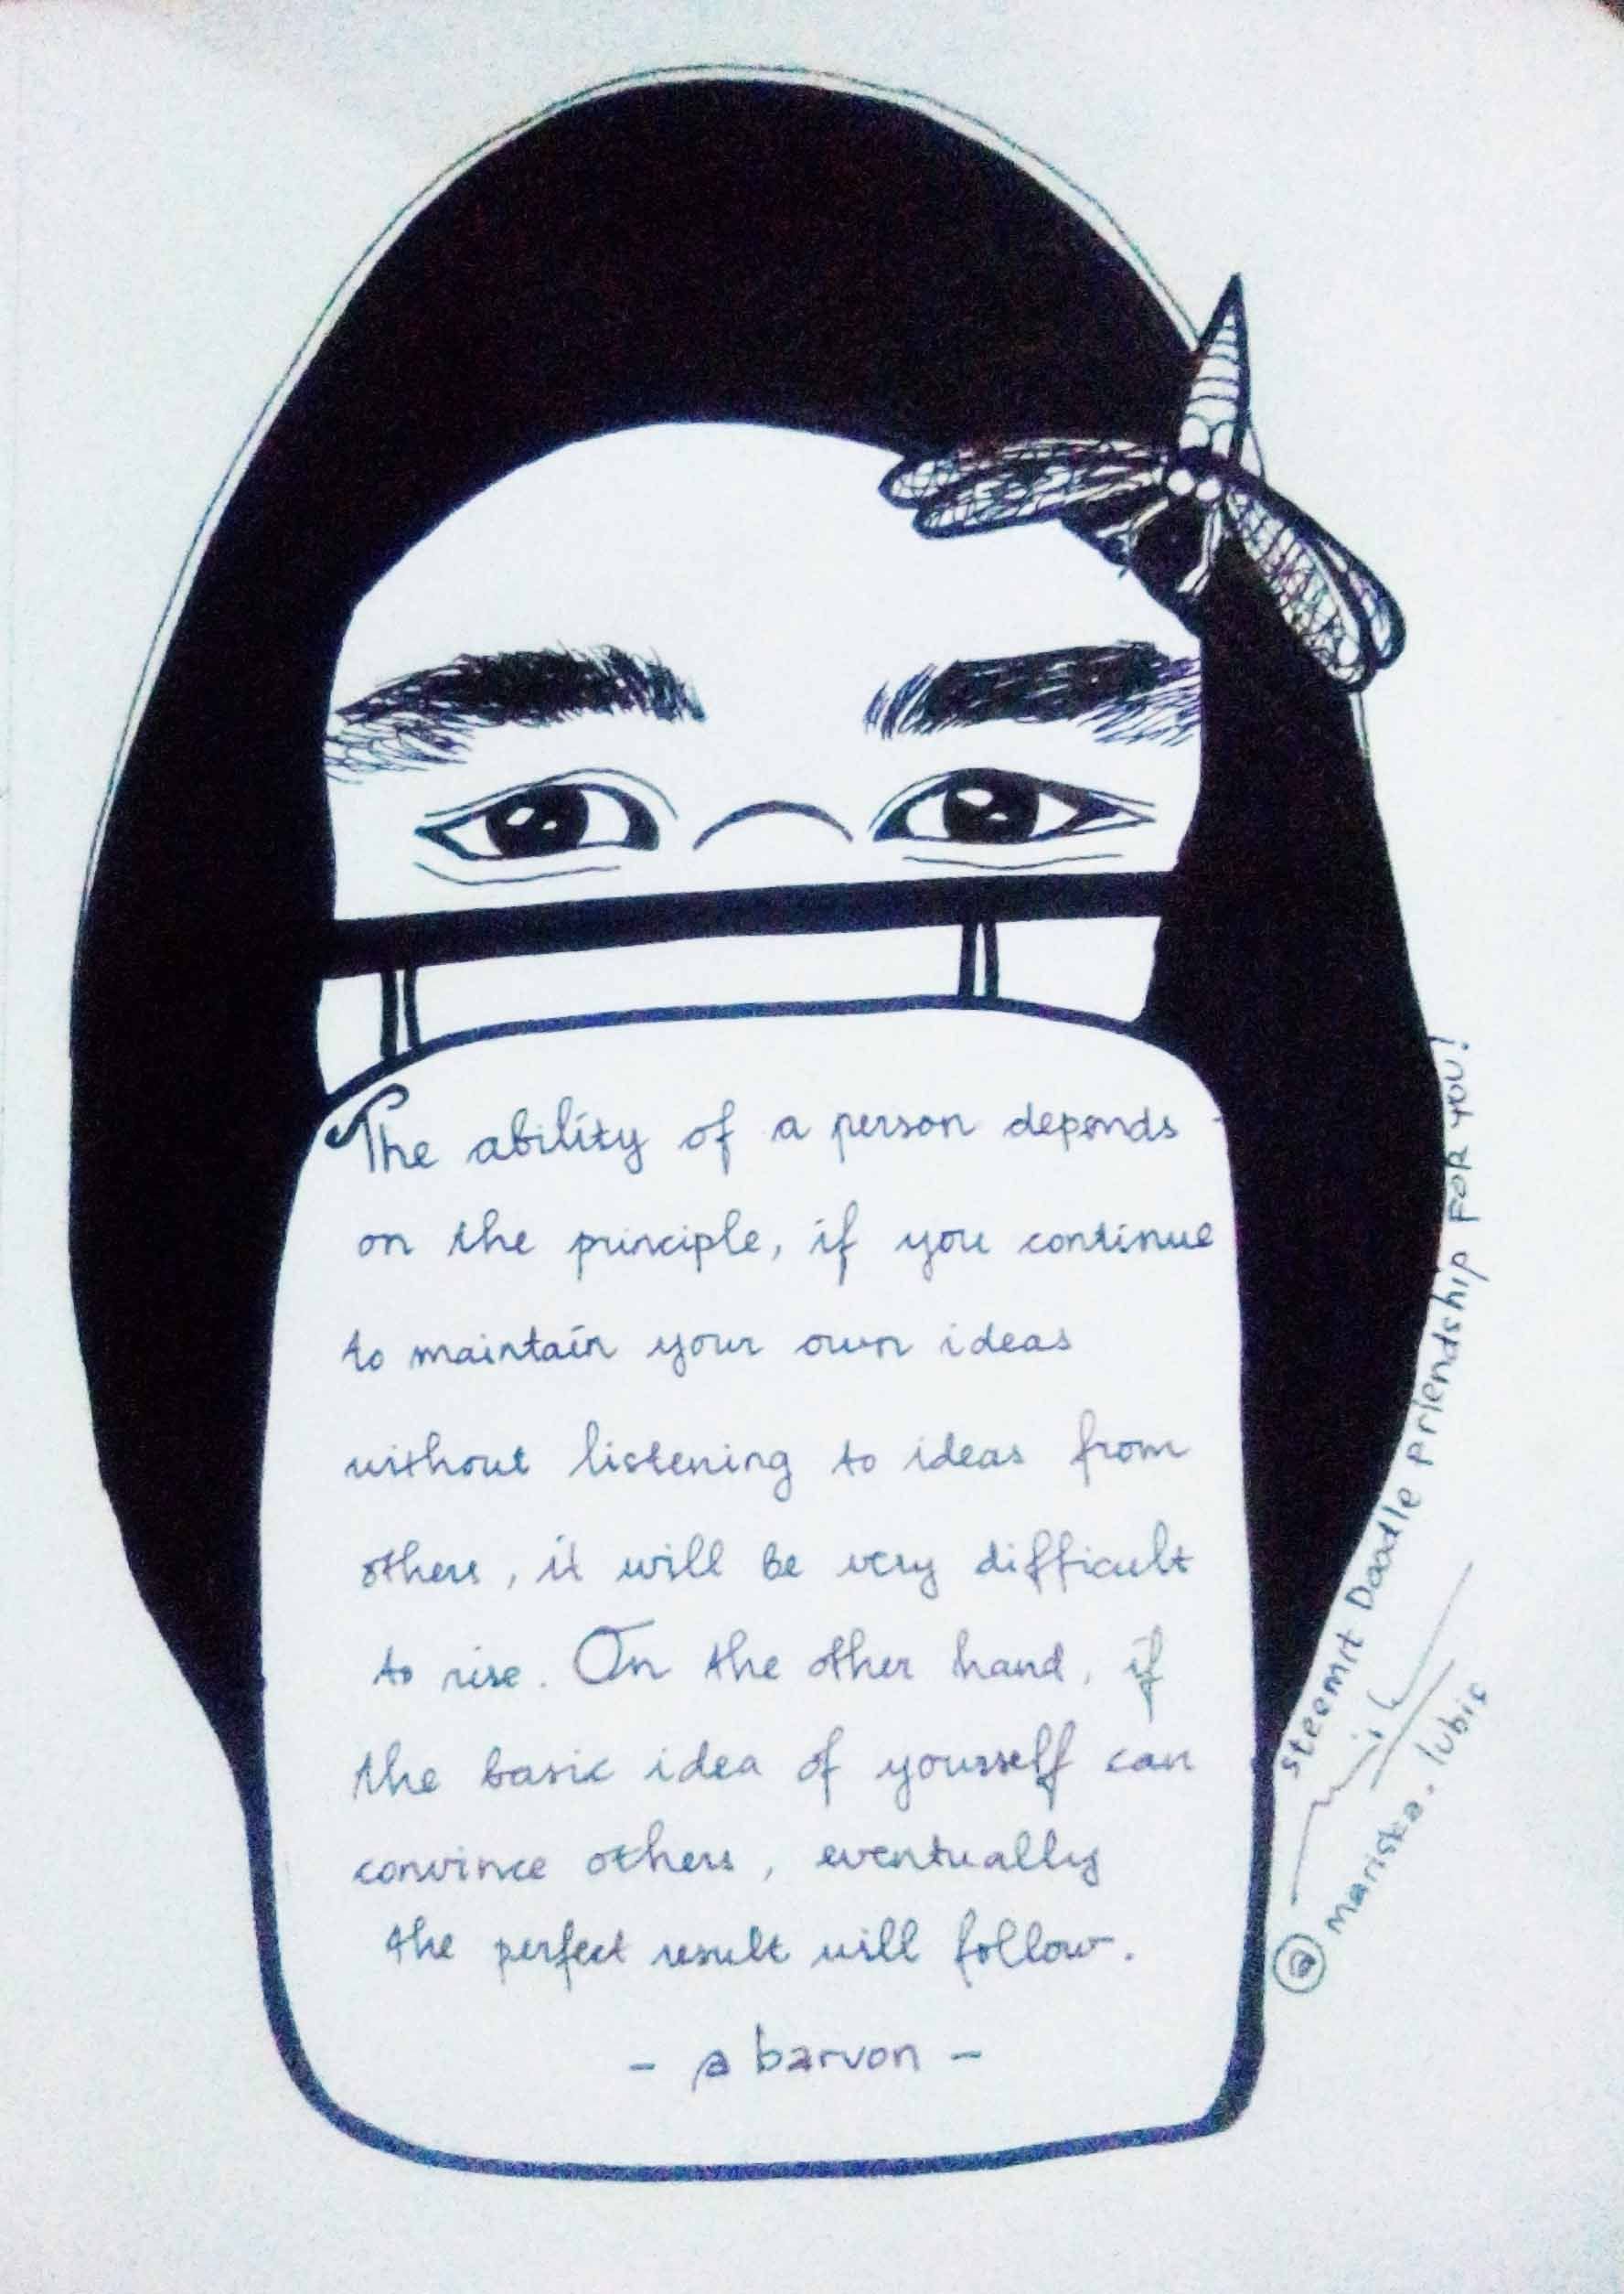 The ability of a person depends
on the principle, if you continue
to maintain your own ideas
without listening to ideas from
others, it will be very difficult
to rise. On the other hand, if
the basic idea of yourself can
convince others, eventually
the perfect result will follow.
- @ barvon -
Steemit Doodle Friendship FOR YOU!
@ mariska.lubis